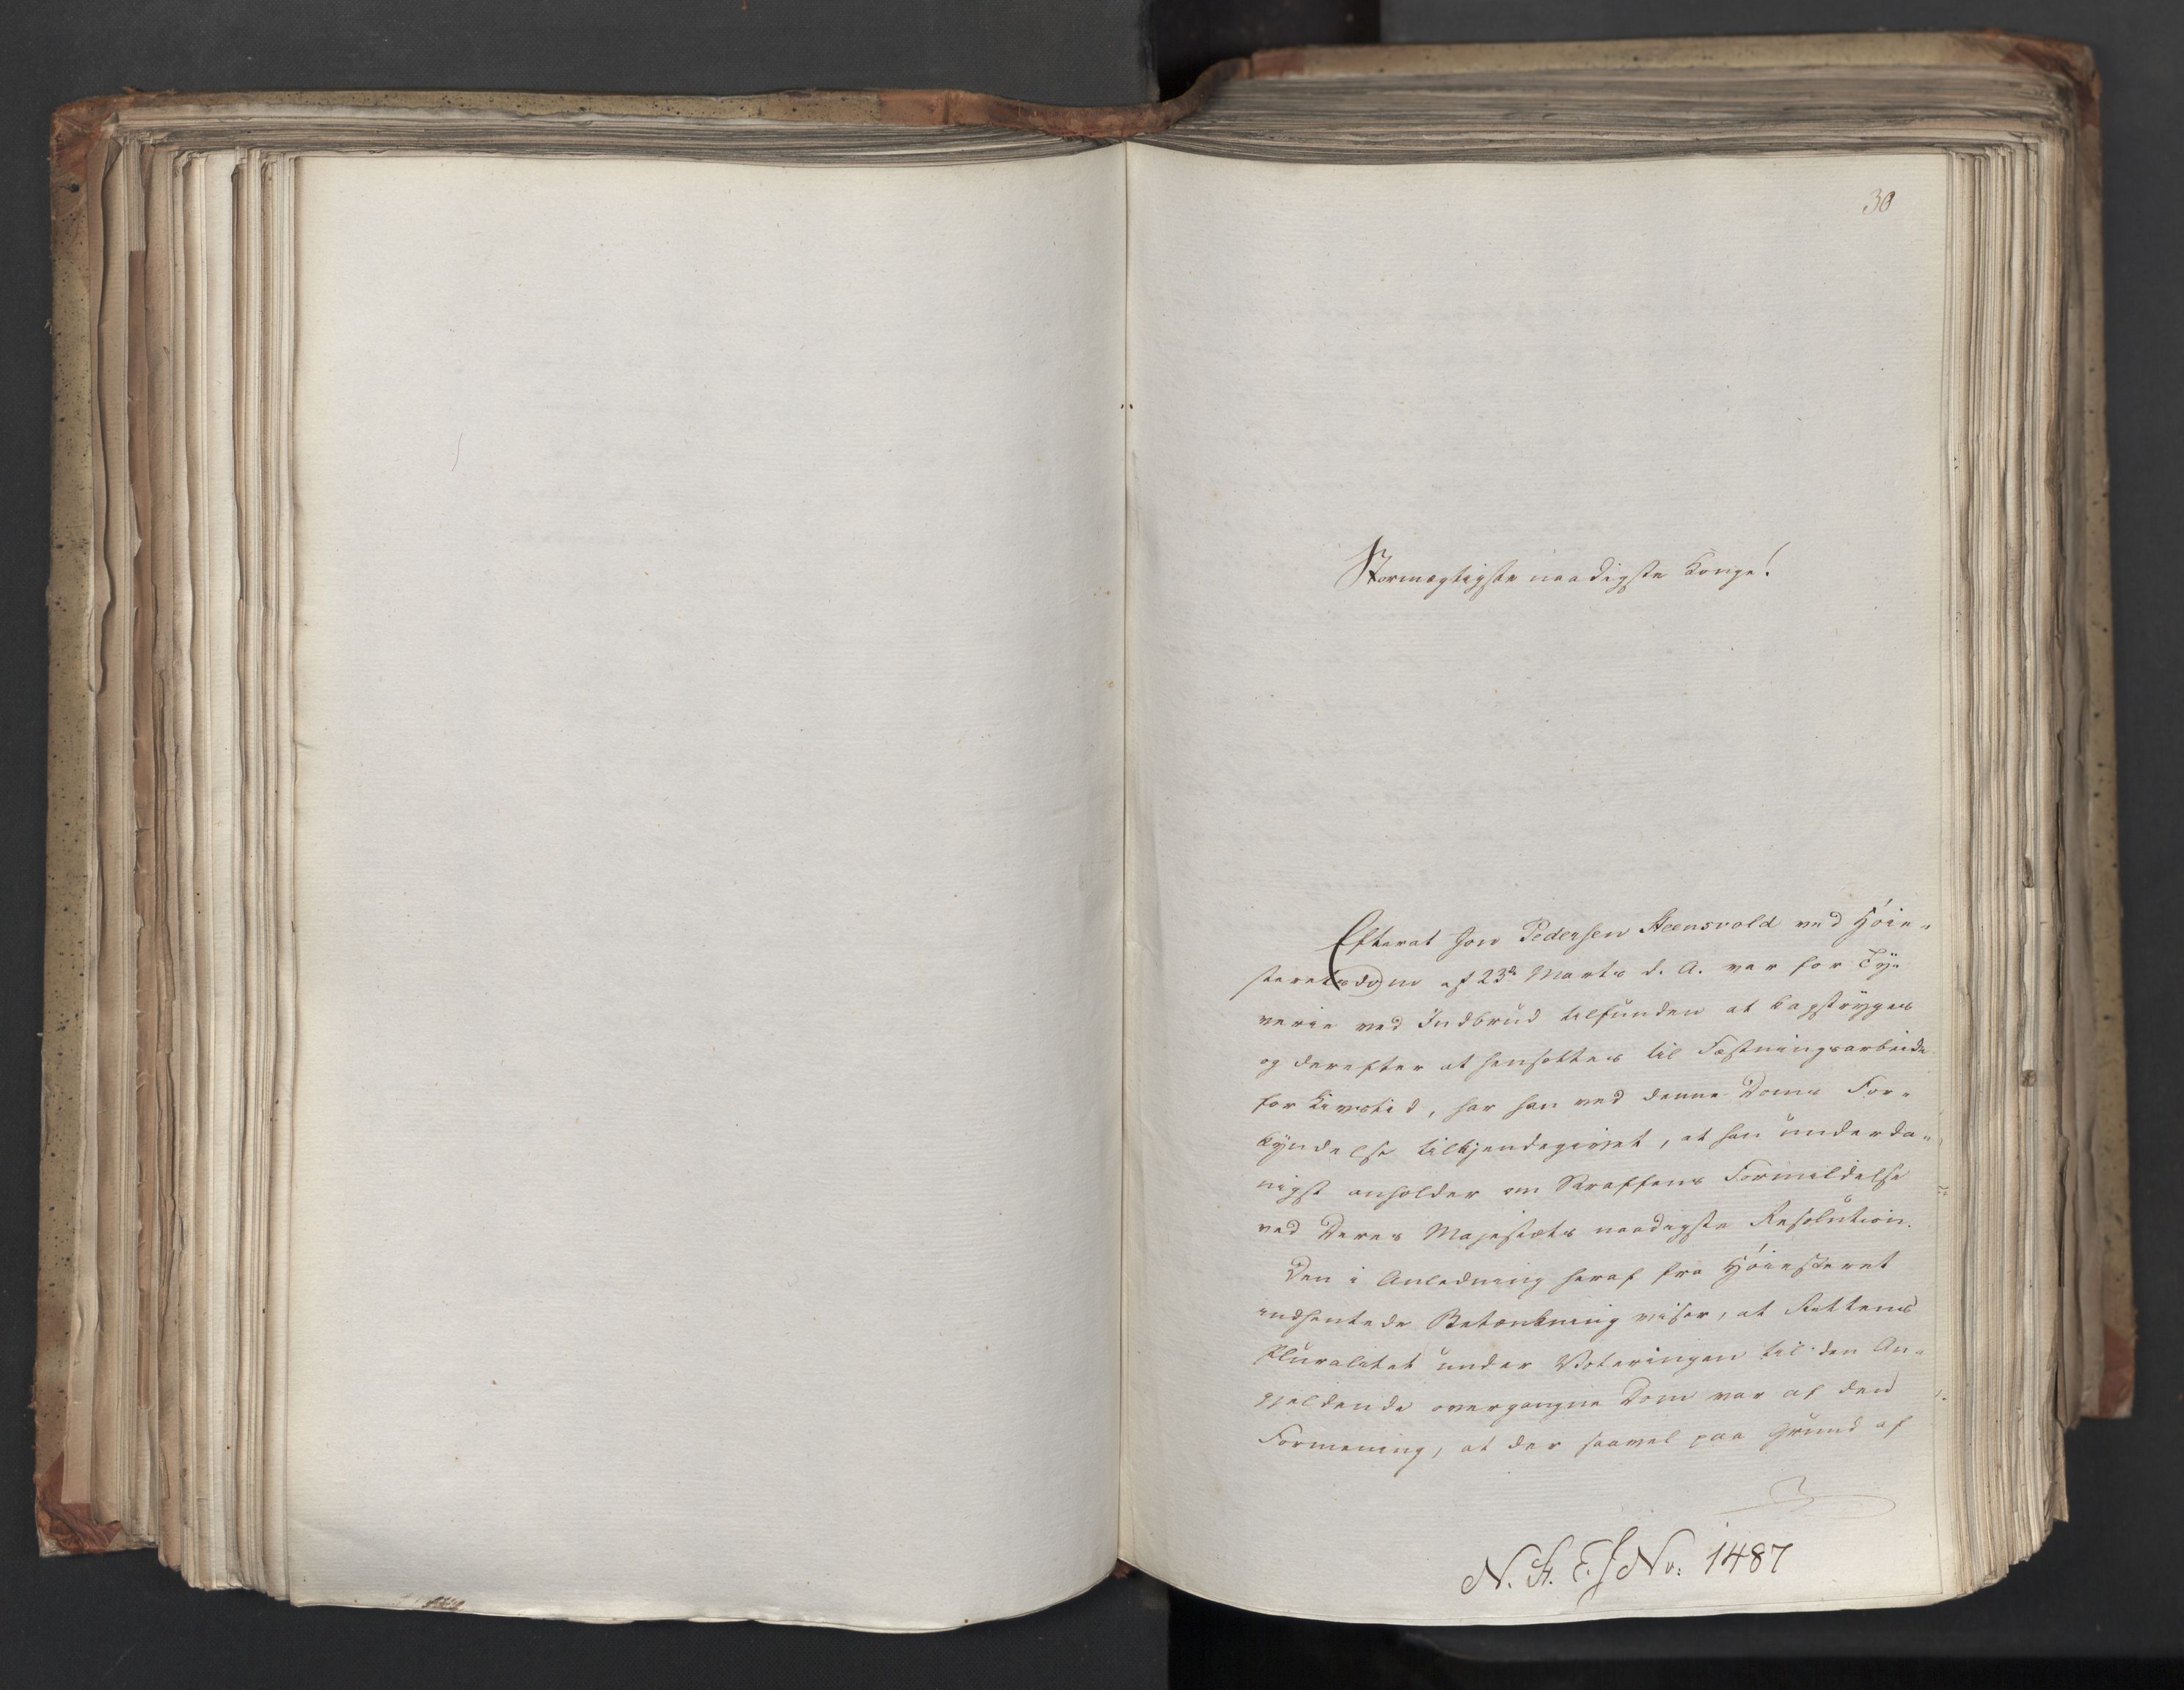 30
Stormægtigste naadigste Konge!
Efterat Jon Pedersen Steensvold ved Høie-
steretsdom af 23de Marts d. A. var for Ty-
verie ved Indbrud tilfunden at kagstryges
og derefter at hensættes til Fæstningsarbeide
for Livstid, har han ved denne Doms For-
kyndelse tilkjendegivet, at han underda-
nigst anholder om Straffens Formildelse
ved Deres Majestæts naadigste Resolution.
Den i Anledning heraf fra Høiesteret
indhentede Betænkning viser, at Rettens
Pluralitet under Voteringen til den An-
gjeldende overgangne Dom var af den
Formening, at der saavel paa Grund af
N. No: 1487